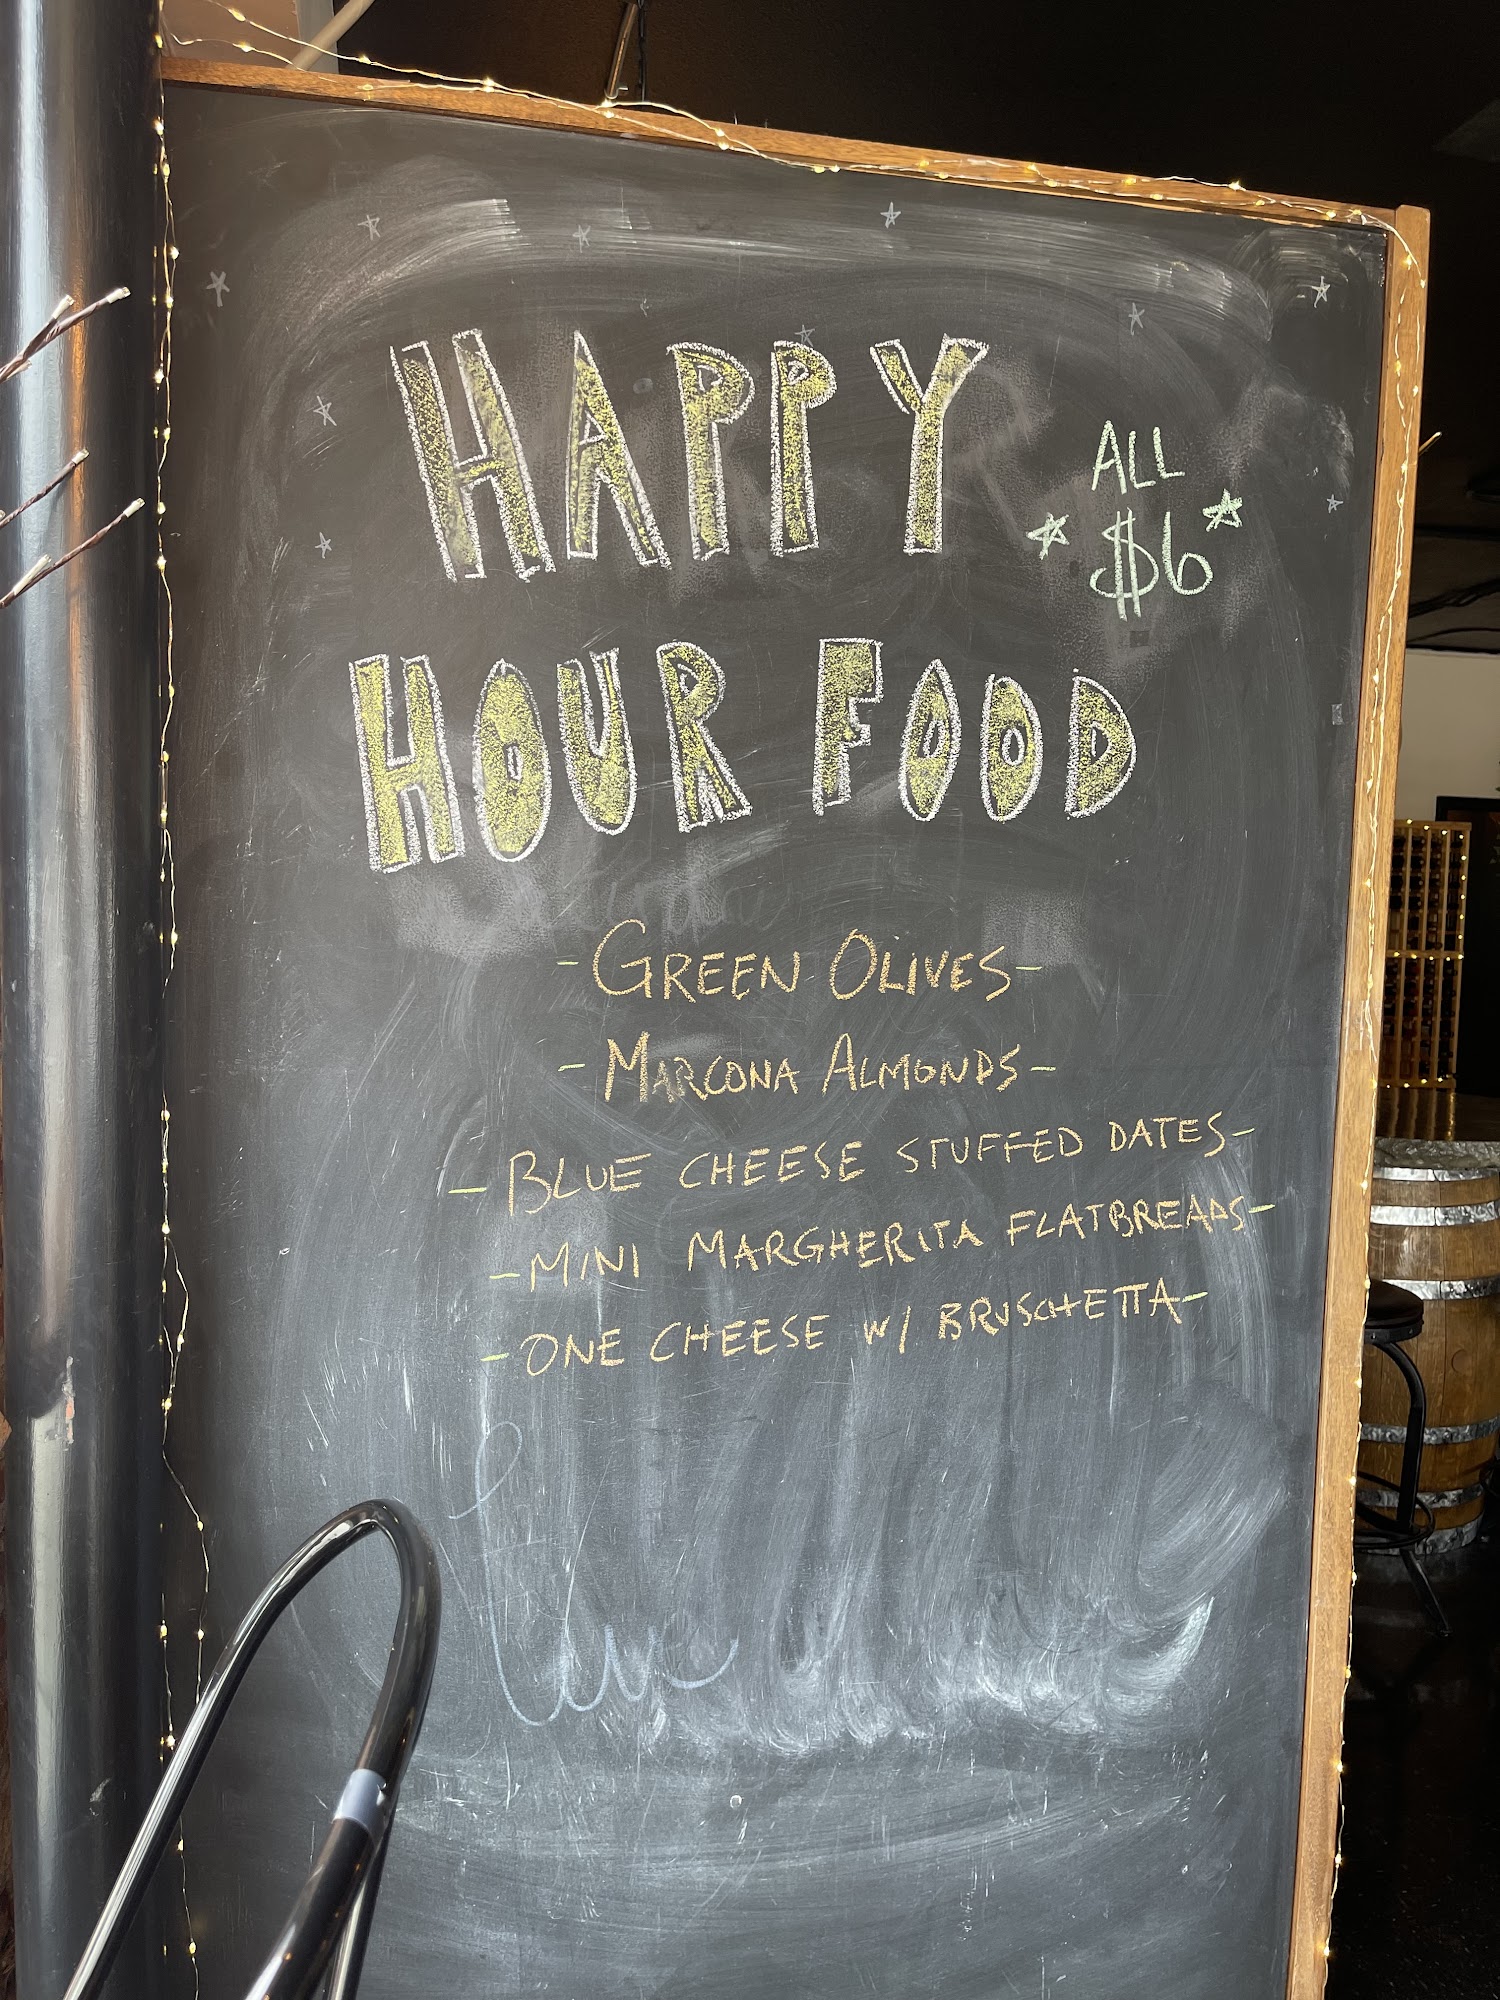 HAPPY
ALL
$6
HOUR FOOD
- GREEN OLIVES -
- MARCONA ALMONDS -
- BLUE CHEESE STUFFED DATES -
- MINI MARGHERITA FLATBREADS -
- ONE CHEESE W/ BRUSCHETTA -